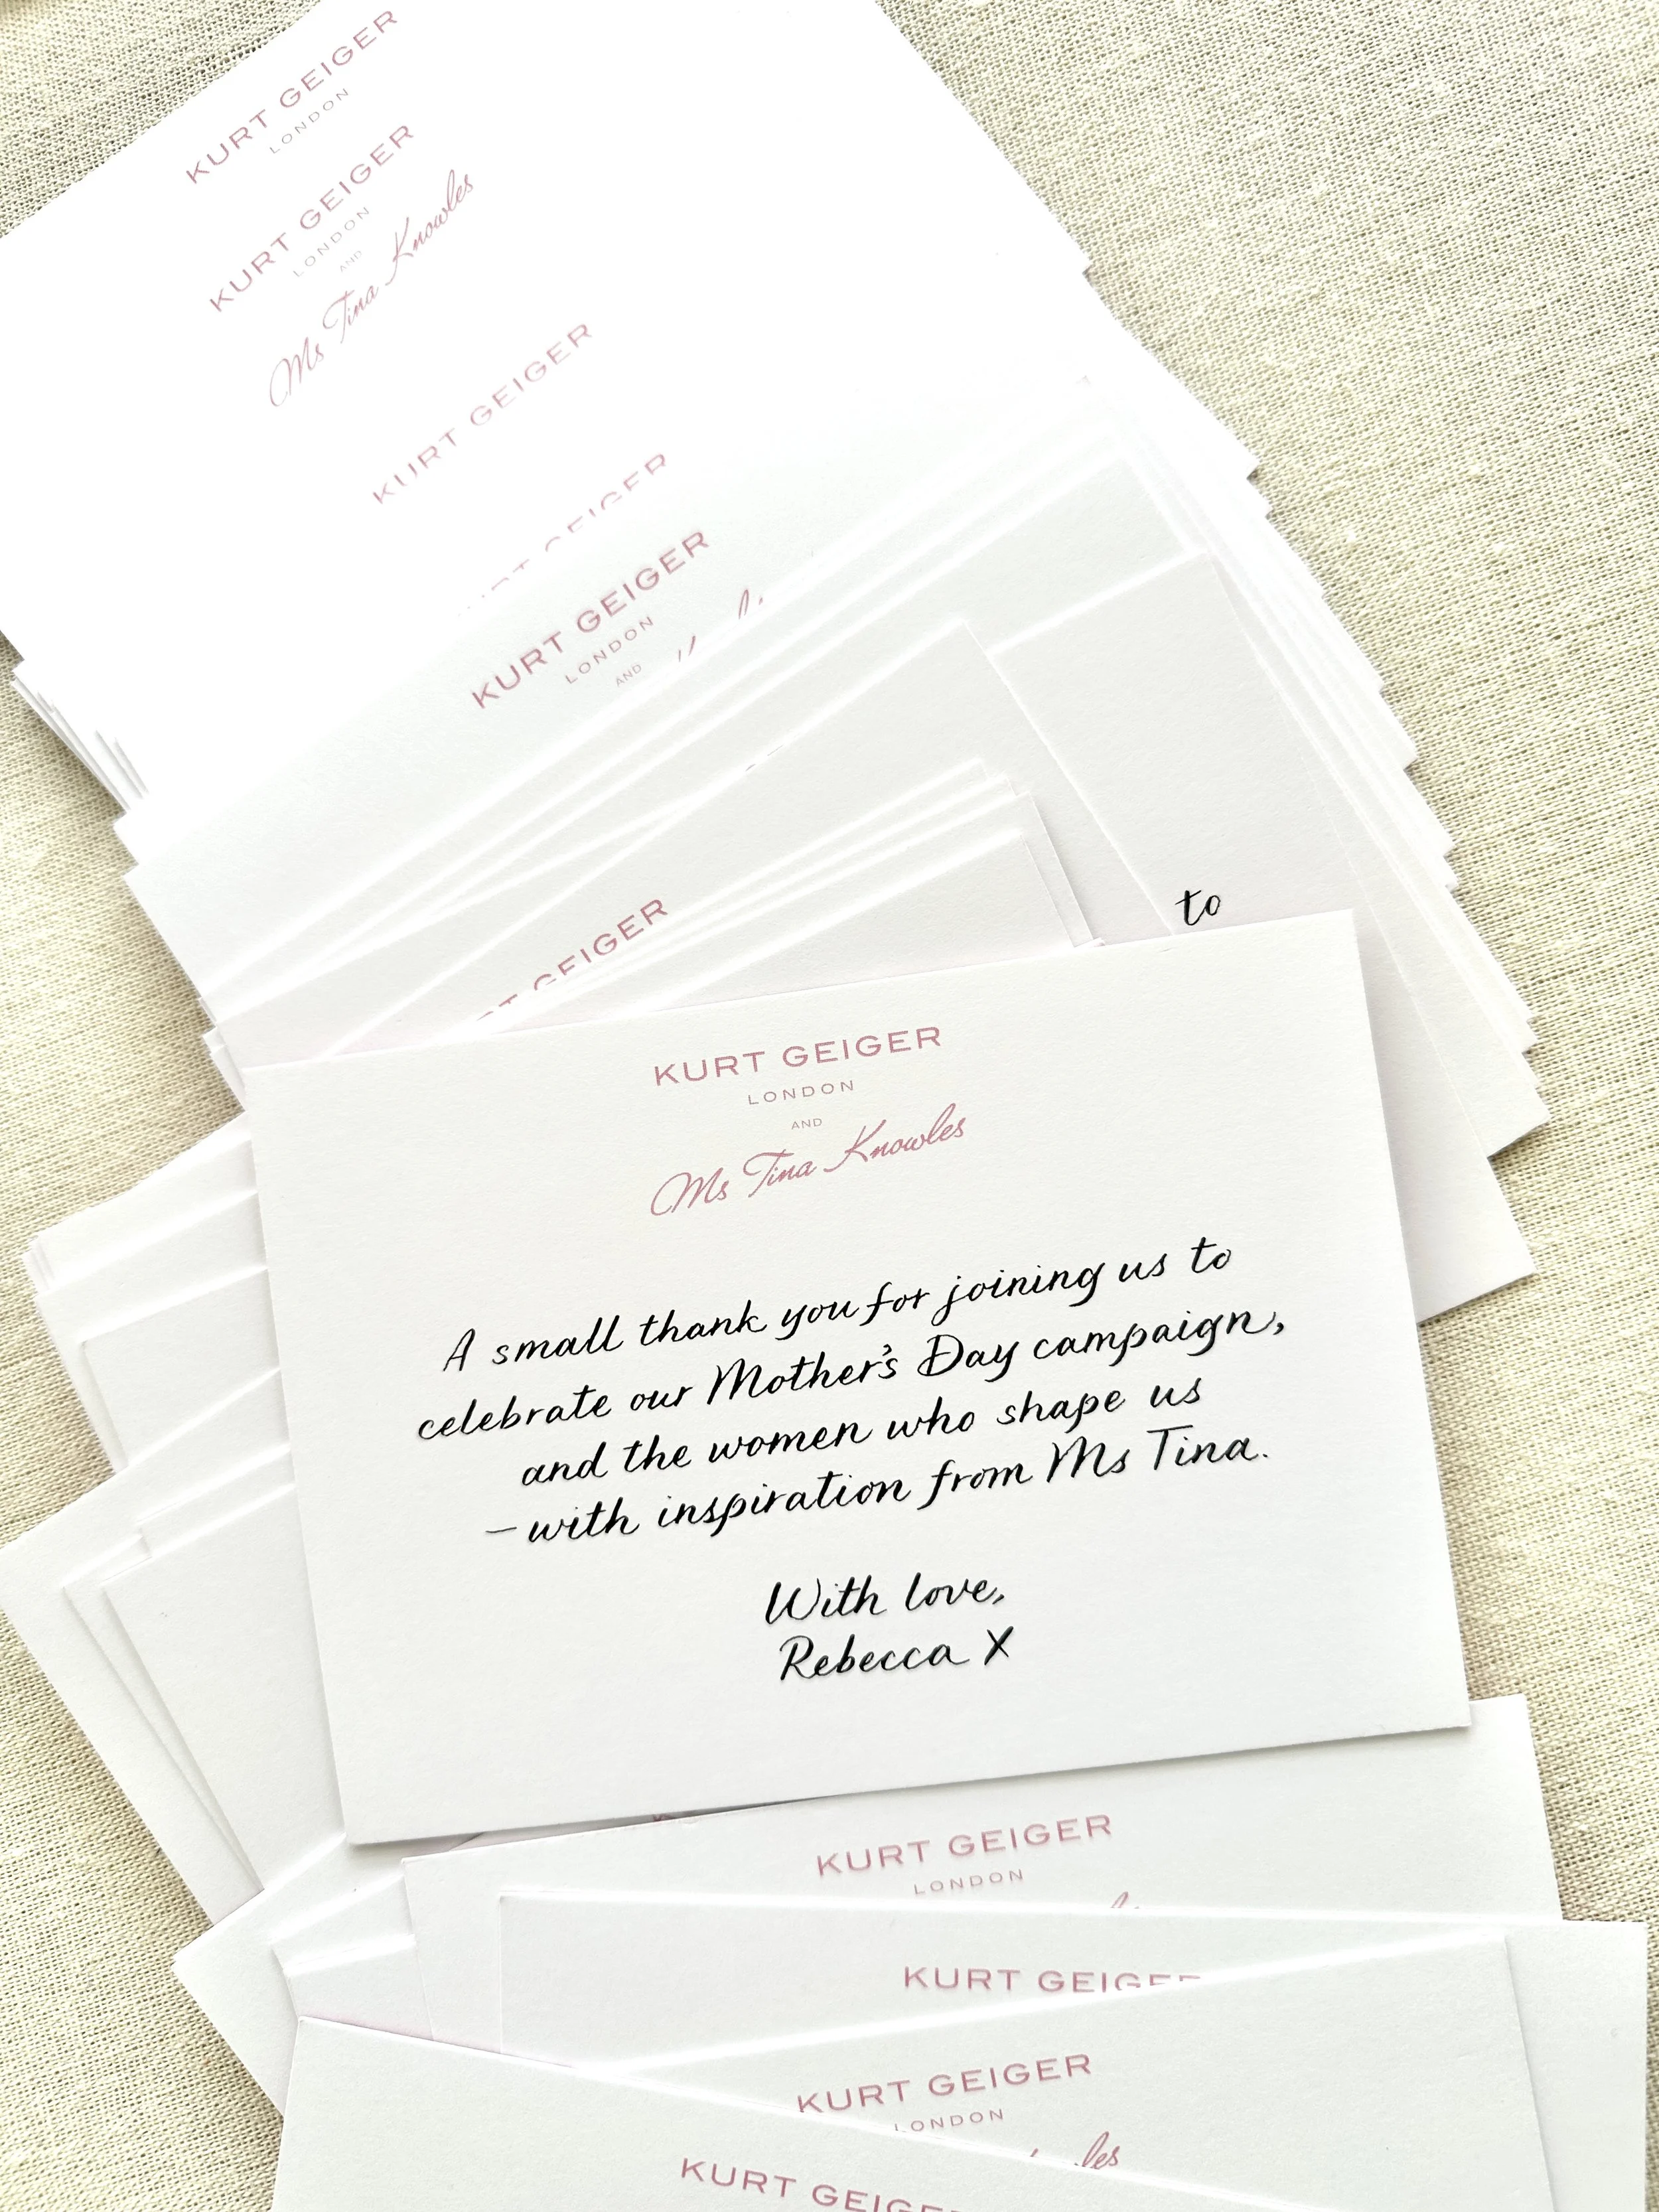 KURT GEIGER
LONDON
KURT GEIGER
LONDON
AND
Ms Tina Knowles
KURT GEIGER
GEIGER
KURT GEIGER
LONDON
AND
to
GEIGER
KURT GEIGER
LONDON
AND
Ms Tina Knowles
A small thank you for joining us to
celebrate our Mother's Day campaign,
and the women who shape us
– with inspiration from Ms Tina.
With love,
Rebecca X
KURT GEIGER
LONDON
KURT GEIGER
KURT GEIGER
LONDON
les
KURT GEIGER